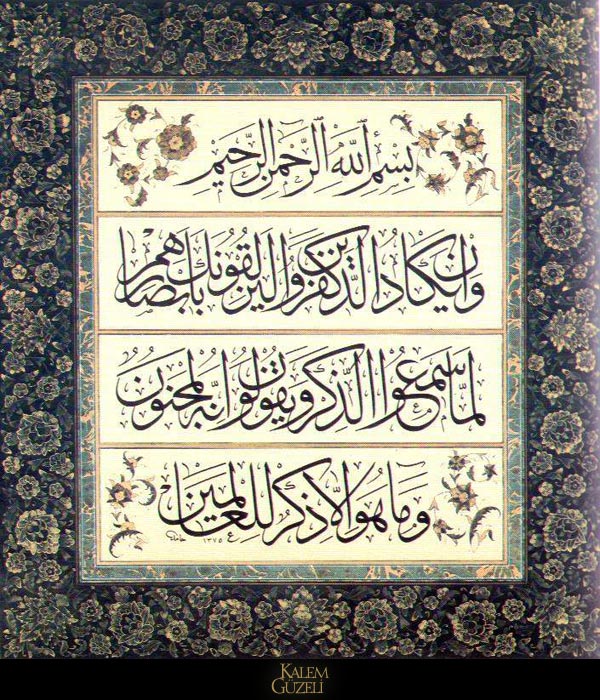 بِسْمِ اللّٰهِ الرَّحْمٰنِ الرَّحِيمِ
وَاِنْ يَكَادُ الَّذِينَ كَفَرُوا لَيُزْلِقُونَكَ بِاَبْصَارِهِمْ
لَمَّا سَمِعُوا الذِّكْرَ وَيَقُولُونَ اِنَّهُ لَمَجْنُونٌ
وَمَا هُوَ اِلَّا ذِكْرٌ لِلْعَالَمِينَ
١٣٧٥
KALEM
GÜZELİ